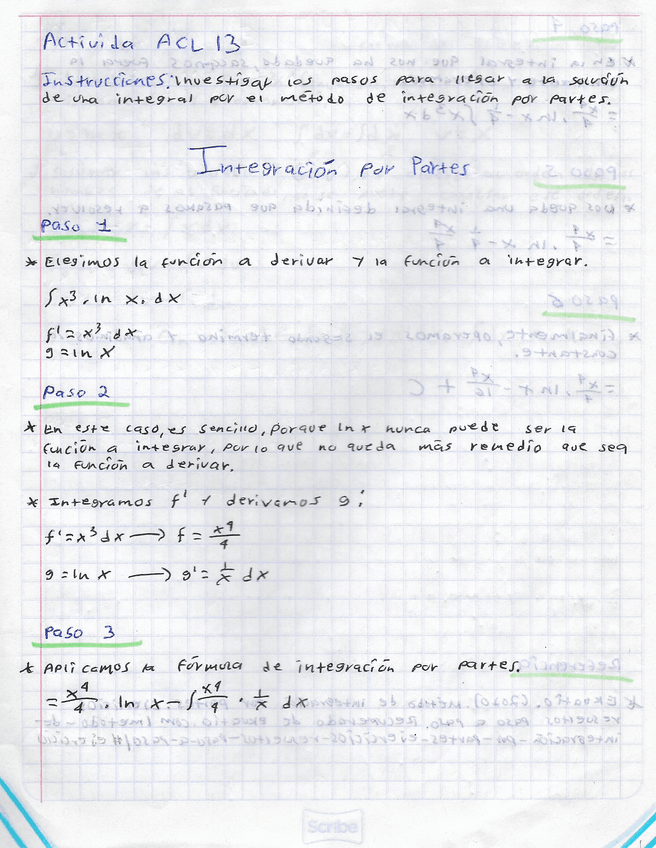 Activida ACL 13
Instrucciones: Investigar los pasos para llegar a la solución
de una integral por el método de integración por partes.
Integración por Partes
Paso 1
* Elegimos la función a derivar y la función a integrar.
∫x³. ln x. dx
f' = x³ dx
g = ln x
Paso 2
* En este caso, es sencillo, porque ln x nunca puede ser la
función a integrar, por lo que no queda más remedio que sea
la función a derivar.
* Integramos f' y derivamos g:
f' = x³ dx → f = x⁴/4
g = ln x → g' = 1/x dx
Paso 3
* Aplicamos la fórmula de integración por partes.
= x⁴/4 . ln x - ∫ x⁴/4 . 1/x dx
Scribe